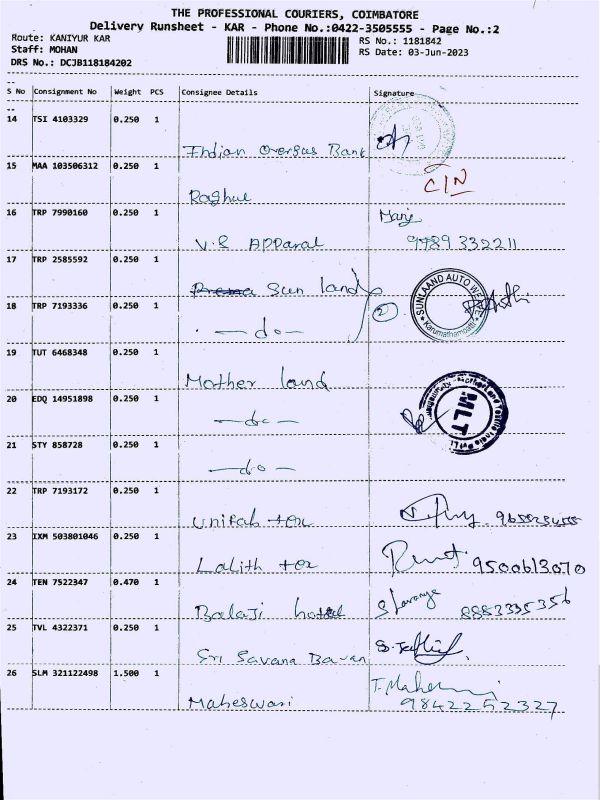 THE PROFESSIONAL COURIERS, COIMBATORE
Delivery Runsheet - KAR - Phone No.:0422-3505555 - Page No.:2
Route: KANIYUR KAR
RS No.: 1181842
Staff: MOHAN
RS Date: 03-Jun-2023
DRS No.: DCJB118184202
S No Consignment No Weight PCS Consignee Details Signature
14 TSI 4103329 0.250 1
Indian Overseas Bank
15 MAA 103506312 0.250 1
Raghul CIN
16 TRP 7990160 0.250 1
V.S Apparal 9789 332211
17 TRP 2585592 0.250 1
Sun land
SUNLAAND AUTO
Karumathampatti
18 TRP 7193336 0.250 1
- do - 2
19 TUT 6468348 0.250 1
Mother land
20 EDQ 14951898 0.250 1
- do -
MLT
21 STY 858728 0.250 1
- do -
22 TRP 7193172 0.250 1
tex
23 IXM 503801046 0.250 1
Lalith tex 9500613070
24 TEN 7522347 0.470 1
Balaji hotel 8883335356
25 TVL 4322371 0.250 1
Sri Savana Bavan
26 SLM 321122498 1.500 1
Maheswari 9842252327